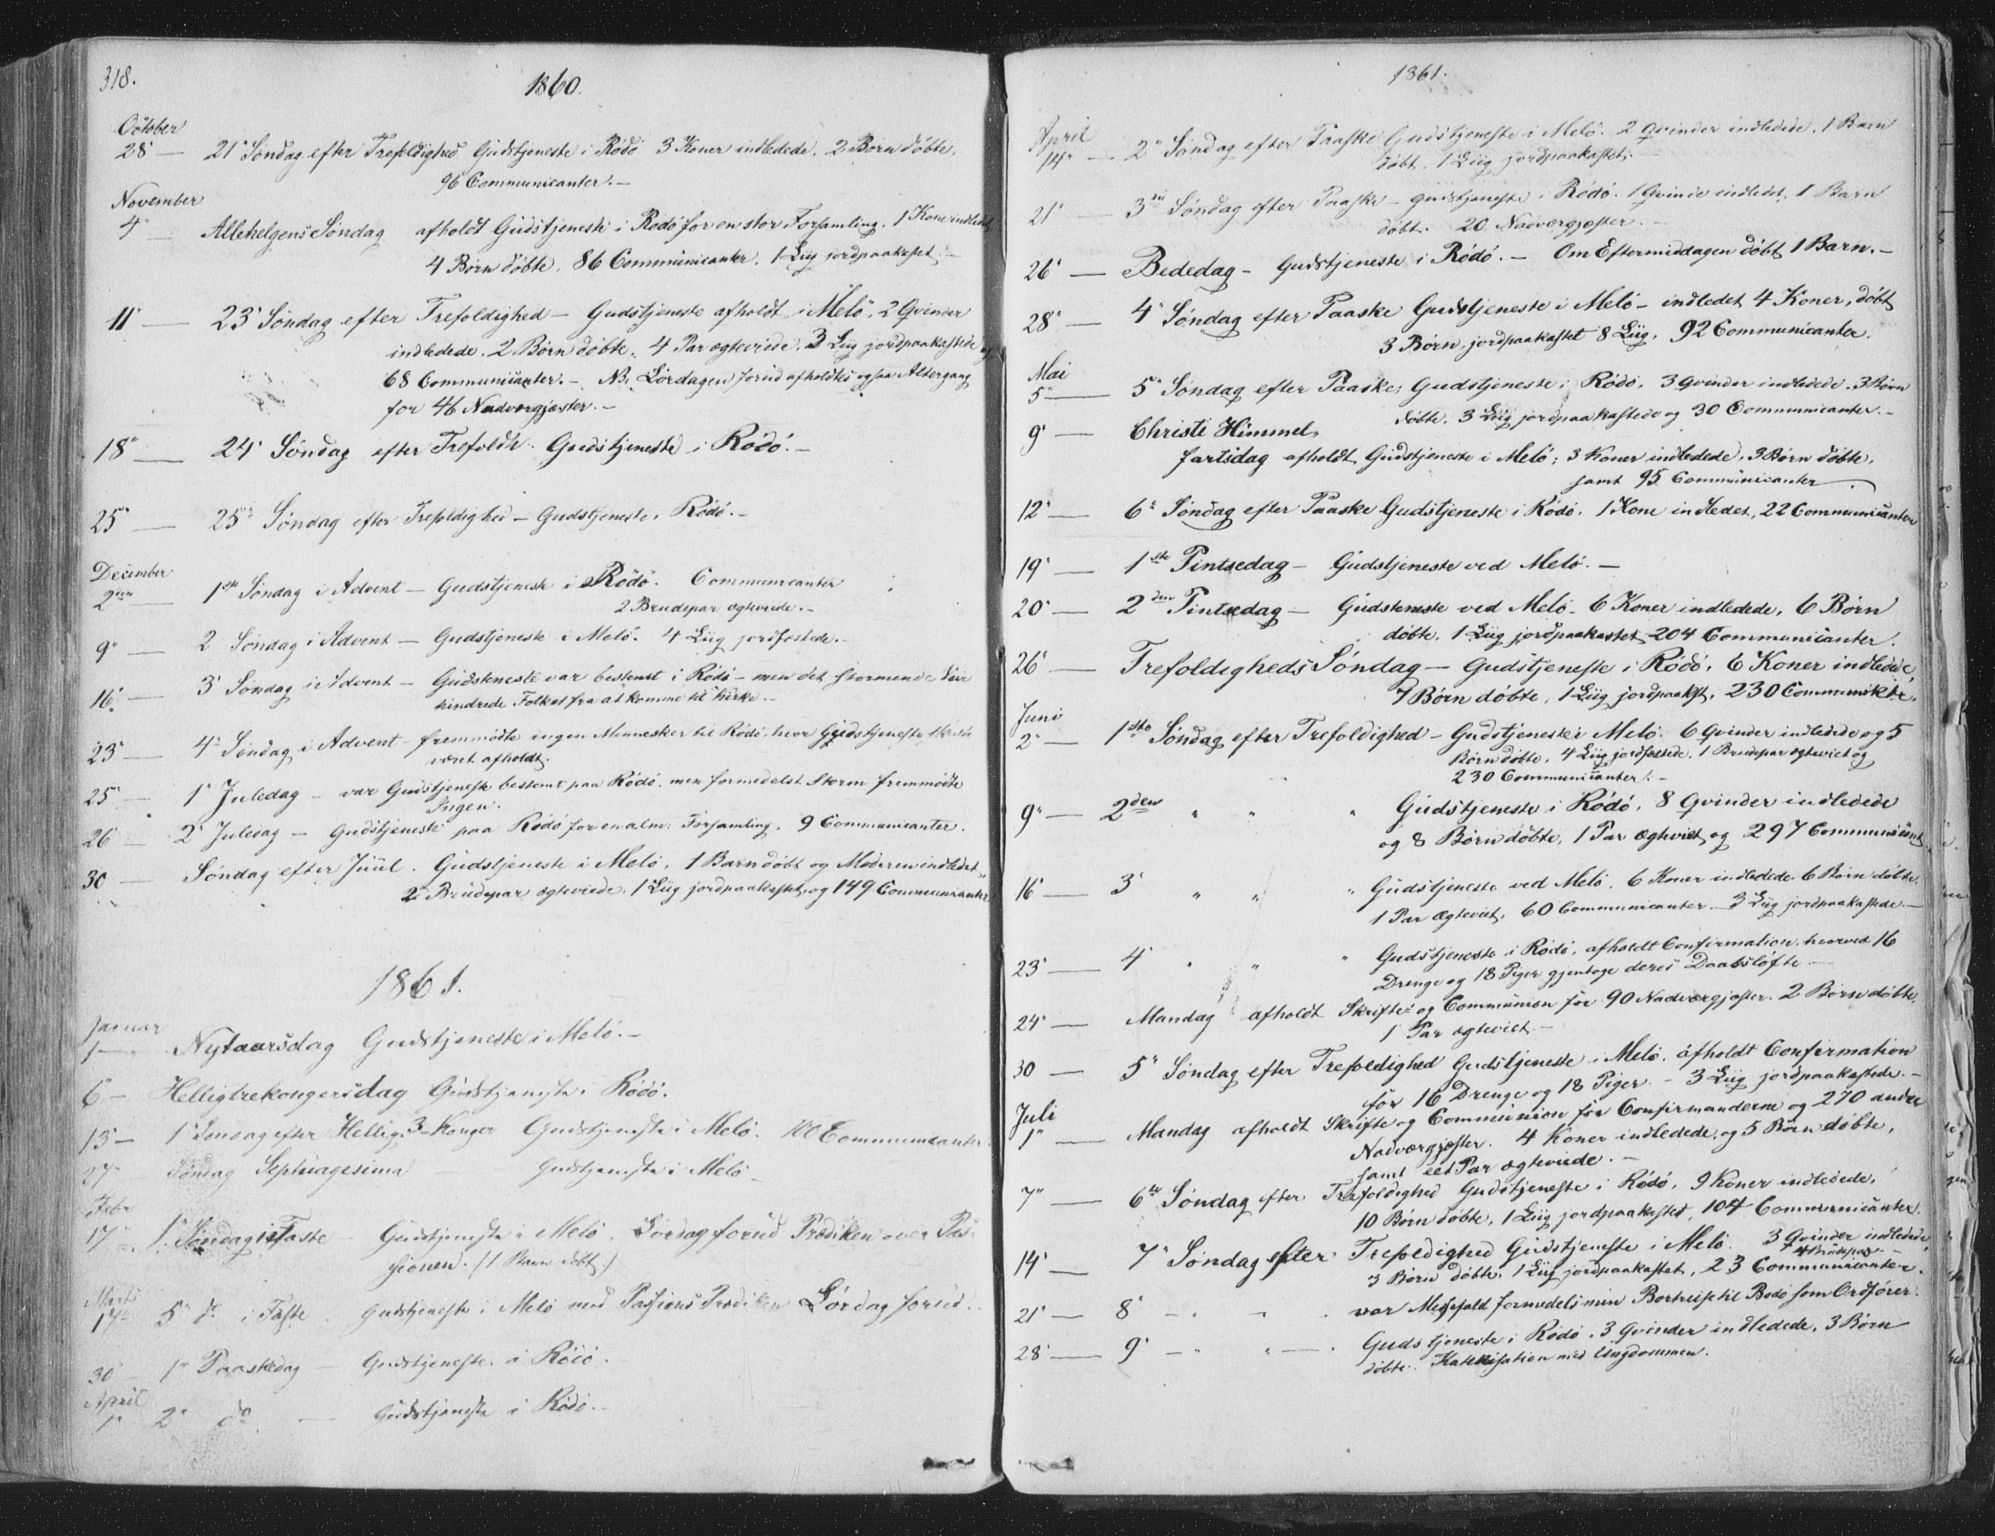 318.
1860.
October
28' — 21' Søndag efter Trefoldighed Gudstjeneste i Rødø 3 Koner indledede. 2 Børn døbte.
96 Communicanter. —
November
4" — Allehelgens Søndag afholdt Gudstjeneste i Rødø for en stor Forsamling. 1 Kone indledet
4 Børn døbte. 86 Communicanter. 1 Liig jordpaakastet. —
11' — 23' Søndag efter Trefoldighed — Gudstjeneste afholdt i Melø. 2 Qvinder
indledede. 2 Børn døbte. 4 Par ægteviede. 3 Liig jordpaakastede og
68 Communicanter. — NB. Lørdagen forud afholdtes ogsaa Altergang
for 46 Nadvergjæster. —
18" — 24' Søndag efter Trefoldh. Gudstjeneste i Rødø. —
25" — 25' Søndag efter Trefoldighed — Gudstjeneste i Rødø. —
December
2den — 1ste Søndag i Advent — Gudstjeneste i Rødø. Communicanter
2 Brudepar ægteviede. —
9" — 2 Søndag i Advent — Gudstjeneste i Melø. 4 Liig jordfæstede. —
16' — 3' Søndag i Advent — Gudsteneste var bestemt i Rødø — men det stormende Veir
hindrede Folket fra at komme til Kirke. —
23' — 4' Søndag i Advent — fremmødte ingen Mennesker til Rødø, hvor Gudstjeneste skulde
været afholdt.
25" — 1' Juledag — var Gudstjeneste bestemt paa Rødø, men formedelst Storm fremmødte
Ingen.
26 — 2' Juledag — Gudstjeneste paa Rødø for en alm. Forsamling. 9 Communicanter.
30 — Søndag efter Juul. Gudstjeneste i Melø. 1 Barn døbt og Moderen indledet,
2 Brudepar ægteviede. 1 Liig jordpaakastet og 149 Communicanter
1861.
Januar
1 — Nytaarsdag Gudstjeneste i Melø. —
6 — Helligtrekongersdag Gudstjeneste i Rødø.
13 — 1' Søndag efter Hellig 3 Konger Gudstjeneste i Melø. 100 Communicanter.
27" Søndag Septuagesima Gudstjeneste i Melø
Febr
17" 1' Søndag i Faste — Gudstjeneste i Melø. Lørdag forud Prædiken over Pas-
sionen. (1 Barn døbt.)
Marts
17" 5" do i Faste. Gudstjeneste i Melø med Passions Prædiken Lørdag forud.
30' — 1" Paaskedag — Gudstjeneste i Rødø.
April
1" 2" do — Gudstjeneste i Rødø. —
1861.
April
14" — 2" Søndag efter Paaske Gudstjeneste i Melø. 2 Qvinder indledede, 1 Barn
døbt. 1 Liig jordpaakastet. —
21' — 3die Søndag efter Paaske — Gudstjeneste i Rødø. 1 Qvinde indledet, 1 Barn
døbt. 20 Nadvergjæster. —
26' — Bededag — Gudstjeneste i Rødø. — Om Eftermiddagen døbt 1 Barn. —
28" — 4' Søndag efter Paaske Gudstjeneste i Melø — indledet 4 Koner, døbt
3 Børn, jordpaakastet 8 Liig, 92 Communicanter.
Mai
5" — 5" Søndag efter Paaske, Gudstjeneste i Rødø, 3 Qvinder indledede. 3 Børn
døbte, 3 Liig jordpaakastede og 30 Communicanter. —
9' — Christi Himmel-
fartsdag afholdt Gudstjeneste i Melø; 3 Koner indledede, 3 Børn døbte,
samt 95 Communicanter.
12' — 6' Søndag efter Paaske Gudstjeneste i Rødø. 1 Kone indledet, 22 Communicanter
19' — 1ste Pintsedag — Gudstjeneste ved Melø. —
20' — 2den Pintsedag — Gudsteneste ved Melø — 6 Koner indledede, 6 Børn
døbte, 1 Liig jordpaakastet 204 Communicanter.
26' — Trefoldigheds Søndag — Gudstjeneste i Rødø, 6 Koner indledede,
7 Børn døbte, 1 Liig jordpaakst, 230 Communikter.
Juni
2" — 1ste Søndag efter Trefoldighed — Gudstjeneste i Melø. 6 Qvinder indledede og 5
Børn døbte, 4 Liig jordfæstede. 1 Brudepar ægteviet og
230 Communicanter. —
9" — 2den " " " Gudstjeneste i Rødø, 8 Qvinder indledede
og 8 Børn døbte, 1 Par ægteviet og 297 Communicant.
16' — 3' " " " Gudstjeneste ved Melø. 6 Koner indledede. 6 Børn døbte.
1 Par ægteviet, 60 Communicanter. — 3 Liig jordpaakastede. —
23' — 4' " " " Gudstjeneste i Rødø, afholdt Confirmation, hvorved 16
Drenge og 18 Piger gjentoge deres Daabsløfte. —
24' — Mandag afholdt Skrifte- og Communion for 90 Nadvergjæster. 2 Børn døbte,
1 Par ægteviet. —
30 — 5" Søndag efter Trefoldighed Gudstjeneste i Melø, afholdt Confirmation
for 16 Drenge og 18 Piger. — 3 Liig jordpaakastede. —
Juli
1" — Mandag afholdt Skrifte og Communion for Confirmanderne og 270 andre
Nadvergjæster. 4 Koner indledede, og 5 Børn døbte,
samt eet Par ægteviede. —
7" — 6te Søndag efter Trefoldighed Gudstjeneste i Rødø, 9 Koner indledede,
10 Børn døbte, 1 Liig jordpaakastet, 104 Communicanter.
14' — 7" Søndag efter Trefoldighed Gudstjeneste i Melø. 3 Qvinder indledede
3 Børn døbte, 1 Liig jordpaakastet, 23 Communicanter.
21' — 8' — " " var Messefald formedelst min Bortreise til Bodø som Ordfører.
28' — 9' — " " — Gudstjeneste i Rødø. 3 Qvinder indledede, 3 Børn
døbte. Katekisation med Ungdommen.